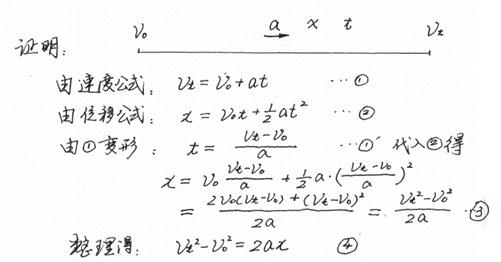 v₀ a x t vₜ
证明:
由速度公式: vₜ = v₀ + at ···①
由位移公式: x = v₀t + 1/2 at² ···②
由①变形: t = (vₜ-v₀)/a ···①′ 代入②得
x = v₀ (vₜ-v₀)/a + 1/2 a·((vₜ-v₀)/a)²
= (2v₀(vₜ-v₀) + (vₜ-v₀)²)/2a = (vₜ²-v₀²)/2a ·③
整理得: vₜ²-v₀² = 2ax ④